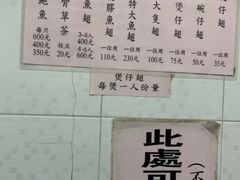 碗仔翅
一位用
35元
煲仔翅
一位用
50元
一位用
100元
特大魚翅
一位用
230元
膠魚翅
一位用
110元
翅
3-4人
400元
4-6人
600元
骨草茶
鮑魚
每只
600元
400元
350元
煲仔翅
每煲一人份量
此處可
(不